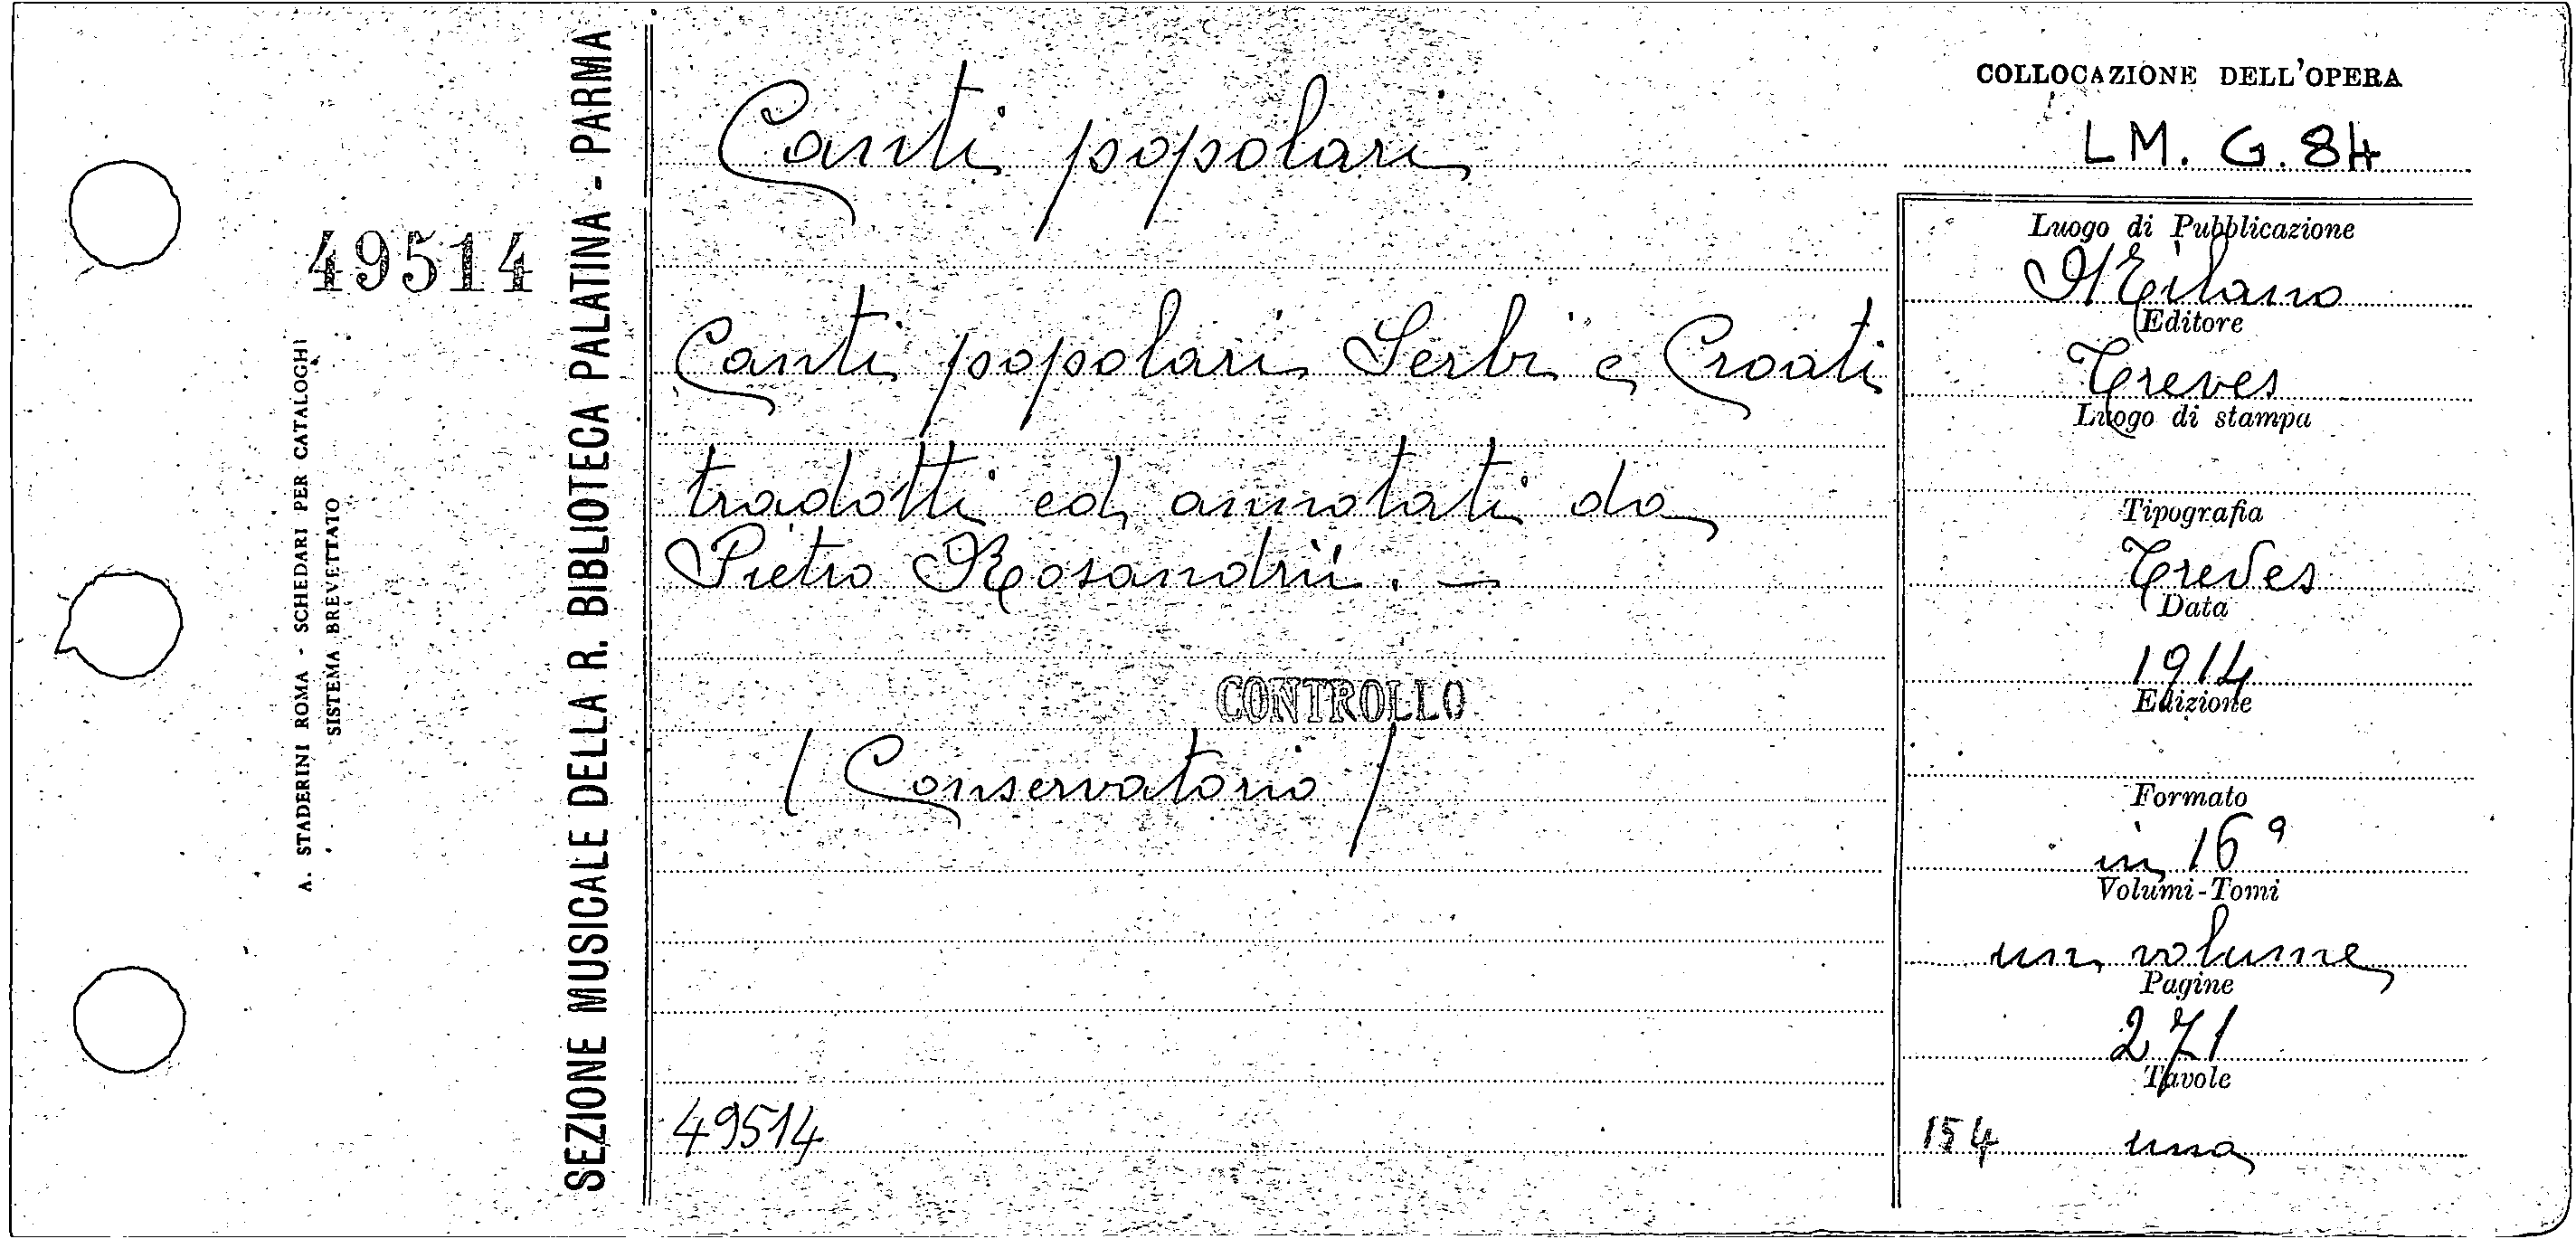 49514
A. STADERINI ROMA - SCHEDARI PER CATALOGHI
SISTEMA BREVETTATO
SEZIONE MUSICALE DELLA R. BIBLIOTECA PALATINA - PARMA
Canti popolari
Canti popolari Serbi e Croati
tradotti ed annotati da
Pietro Kosandrii. —
CONTROLLO
/ Conservatorio /
49514
COLLOCAZIONE DELL'OPERA
LM. G. 84
Luogo di Pubblicazione
Milano
Editore
Treves
Luogo di stampa
Tipografia
Treves
Data
1914
Edizione
Formato
in 16º
Volumi-Tomi
un volume
Pagine
271
Tavole
154 una